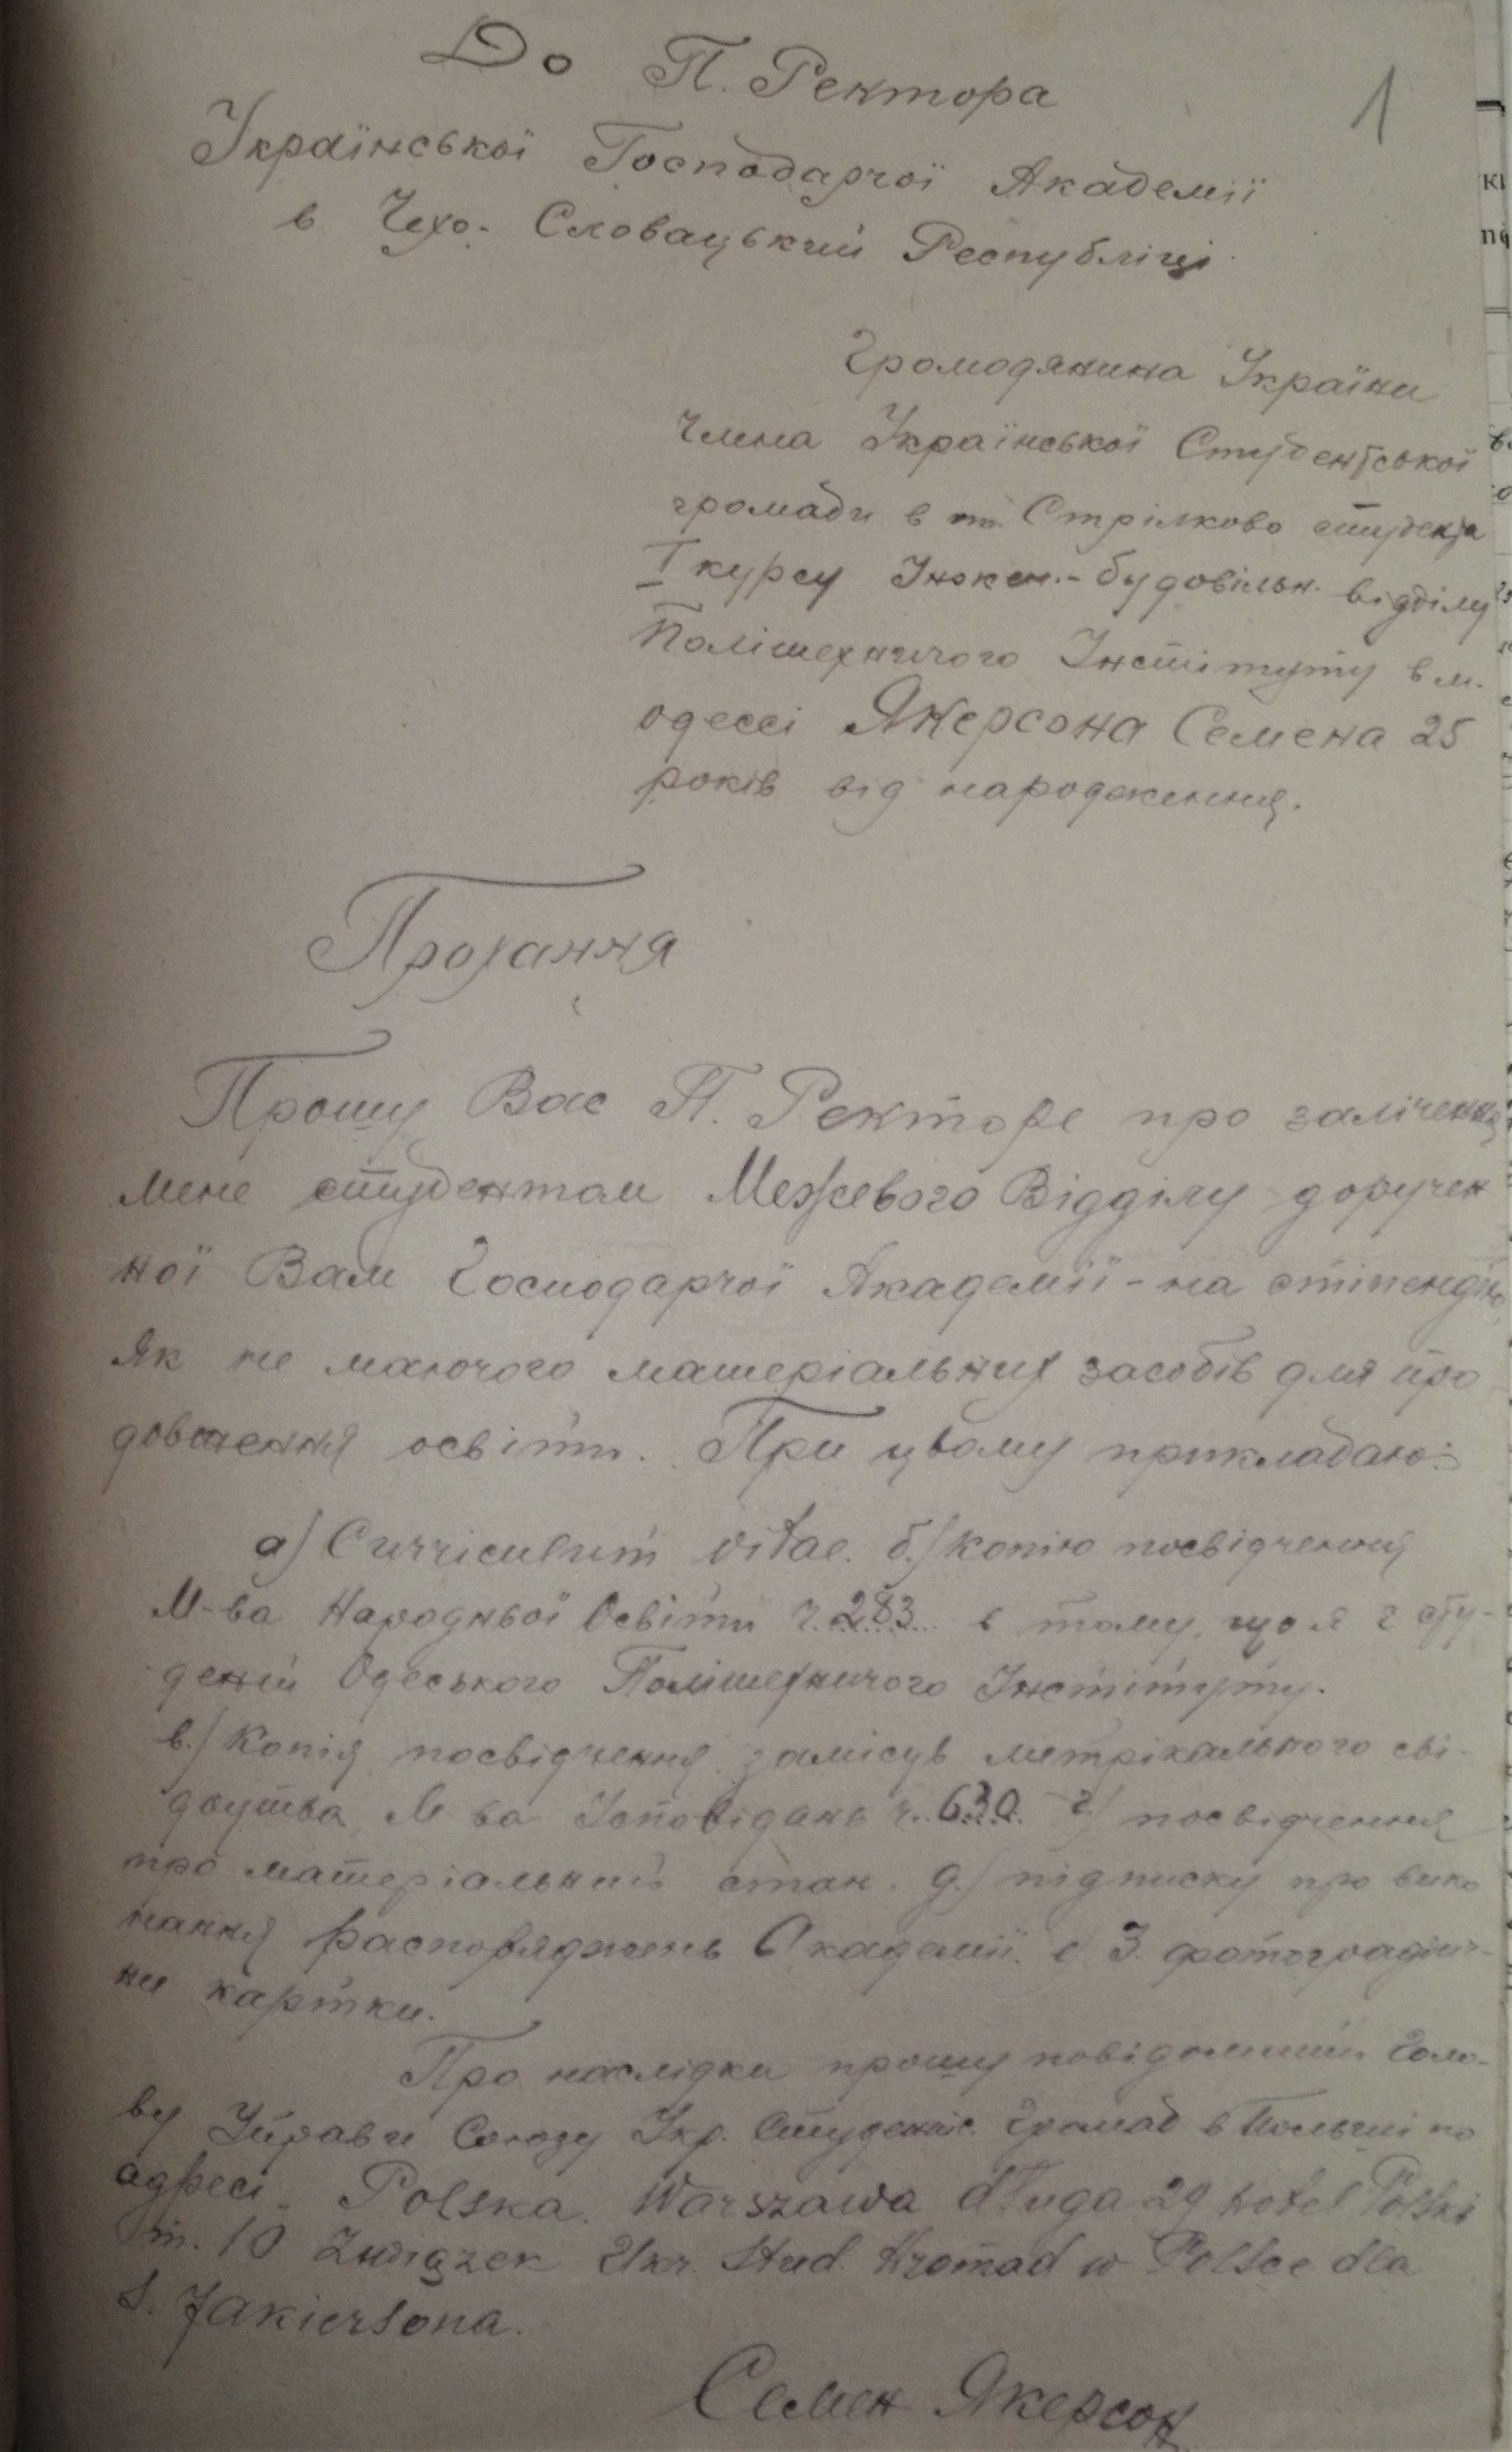 До П. Ректора
1
Української Господарчої Академії
в Чехо-Словацький Республіці
Громодянина України
Члена Української Студентської
громади в т. Стрілково студента
I курсу Інжен.-будовільн. відділу
Політехничого Інстітуту в м.
Одессі Якерсона Семена 25
років від народження.
Прохання
Прошу Вас П. Ректоре про залічення
мене студентом Межевого Відділу доручен
ної Вам Господарчої Академії - на стіпендію
Як не маючого матеріальних засобів для про
довження освіти. При цьому прикладаю:
а) Curriculum vitae. б.) копію посвідчення
М-ва Народньої Освіти ч. 283 в тому, що я є сту-
дент Одеського Політехничого Інстітуту.
в.) Копія посвідчення замісць метрікального сві-
доцтва М-ва Ісповідань ч. 630. г) посвідчення
про матеріальний стан. д.) підписку про вико
нання распоряджень Академії. е) 3 фотографіч-
ни картки.
Про наслідки прошу повідомити Голо-
ву Управи Союзу Укр. Студентс. Громад в Польщі по
адресі. Polska. Warszawa długa 29 hotel Polski
m. 10 Związek Ukr. Stud. Hromad w Polsce dla
S. Jakiersona.
Семен Якерсон